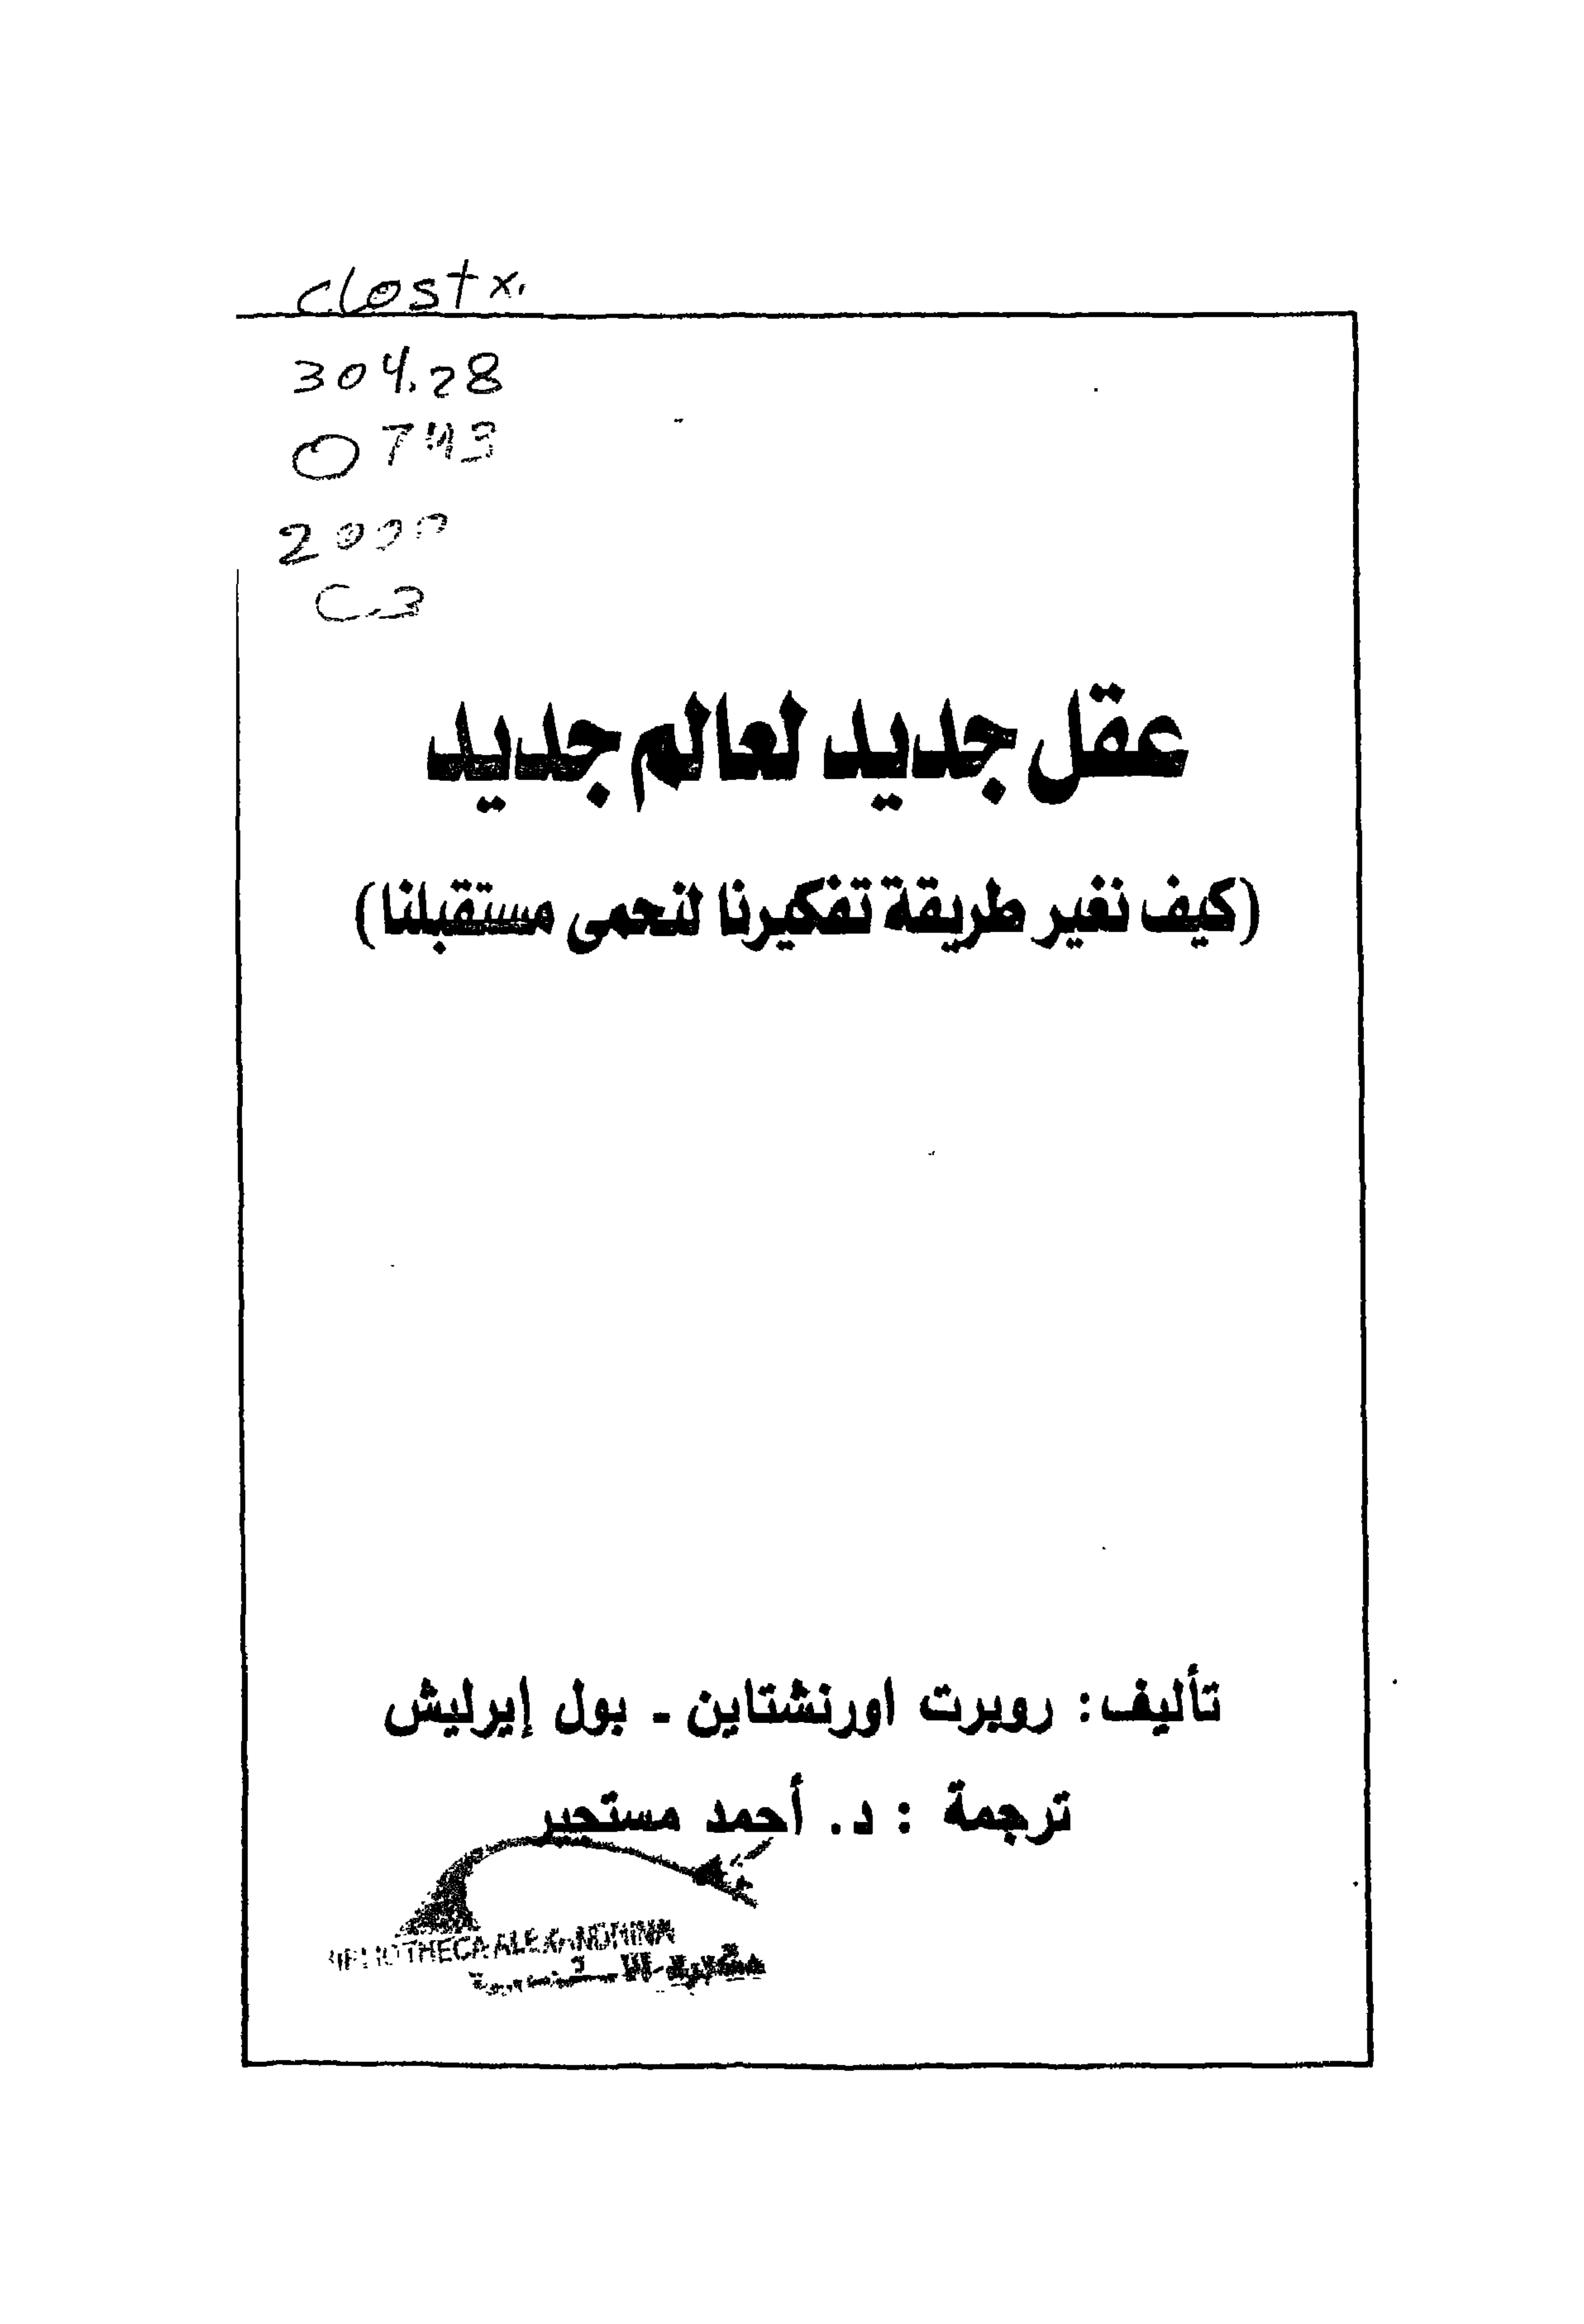 clostx.
304.28
O 743
2000
C.3
عقل جديد لعالم جديد
(كيف نغير طريقة تفكيرنا لنحمى مستقبلنا)
تأليف: روبرت اورنشتاين ـ بول إيرليش
ترجمة : د. أحمد مستجير
BIBLIOTHECA ALEXANDRINA